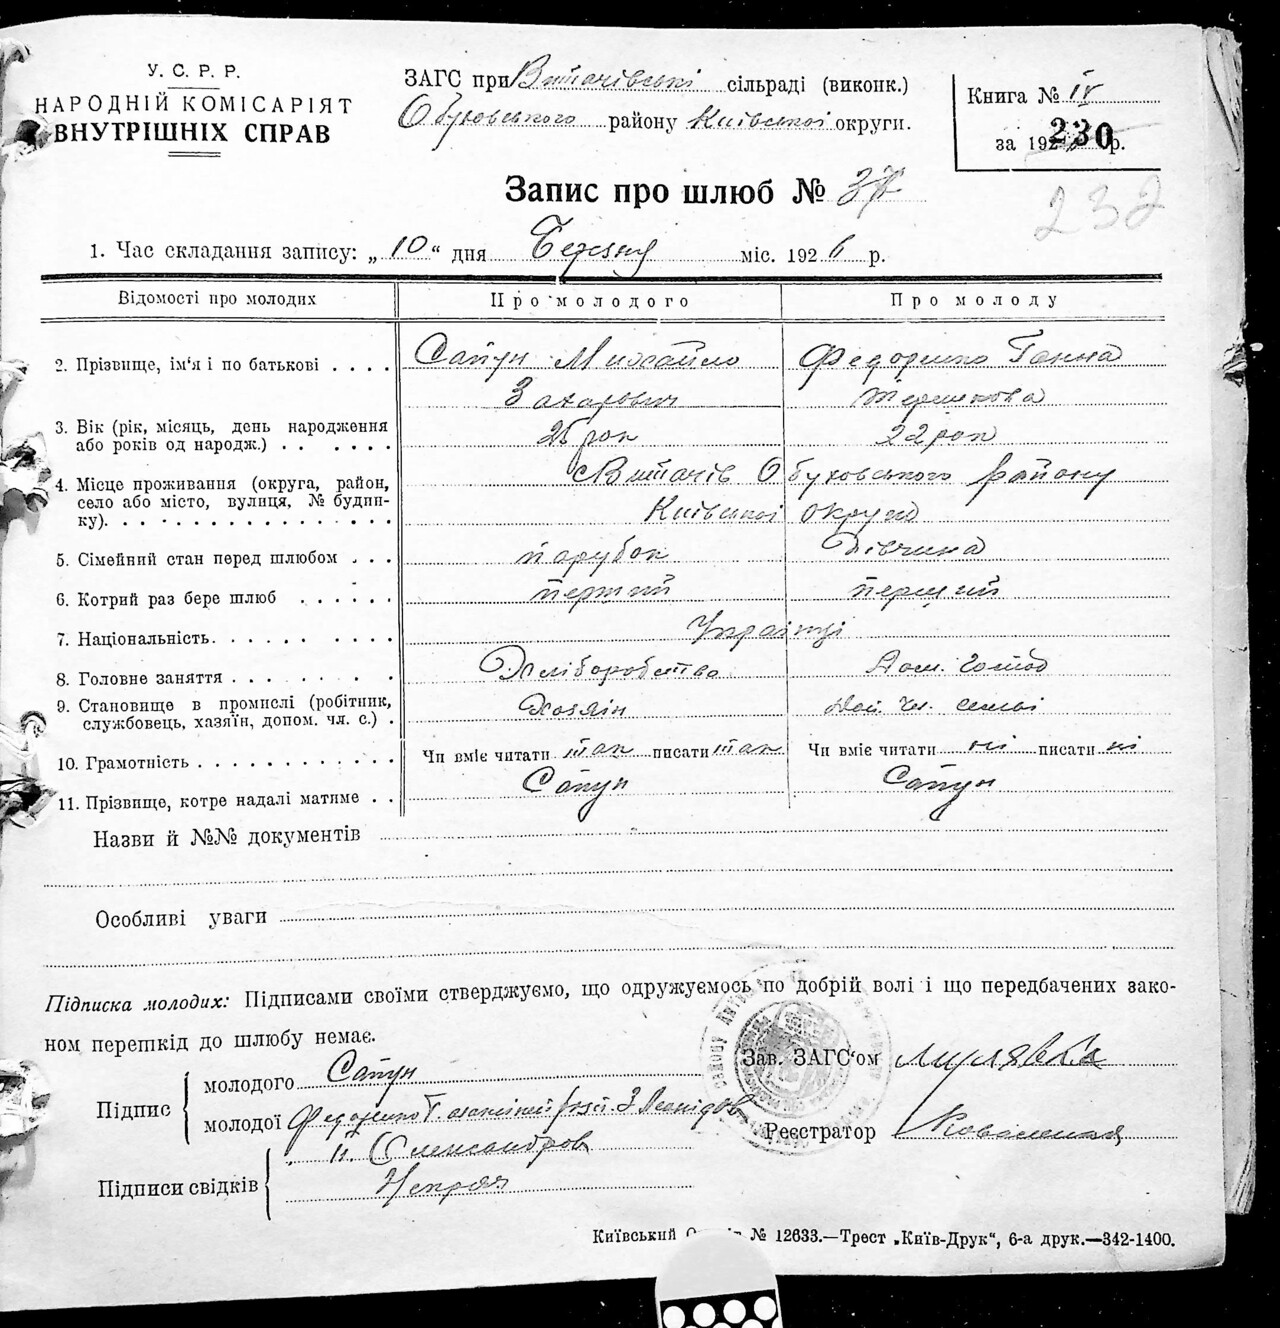 У. С. Р. Р.
НАРОДНІЙ КОМІСАРІЯТ
ВНУТРІШНІХ СПРАВ
ЗАГС при Витачівські сільраді (виконк.)
Обуховського району Київської округи.
Книга № IV
за 192 р.
230
232
Запис про шлюб № 37
1. Час складання запису: „ 10 “ дня Березня міс. 1926 р.
Відомості про молодих Про молодого Про молоду
2. Прізвище, ім‘я і по батькові . . . . Сапун Михайло Федоренко Ганна
Захарович Терешкова
3. Вік (рік, місяць, день народження
або років од народж.) . . . . . . 25 рок 22 рок
4. Місце проживання (округа, район, с Витачів Обуховського району
село або місто, вулиця, № будин-
ку). . . . . . . . . . . . . . . . Київської округи
5. Сімейний стан перед шлюбом . . . парубок Дівчина
6. Котрий раз бере шлюб . . . . . . перший перший
7. Національність. . . . . . . . . . Українці
8. Головне заняття . . . . . . . . Хліборобство Дом. господ
9. Становище в промислі (робітник,
службовець, хазяїн, допом. чл. с.) . Хозяїн чл. семьї
10. Грамотність . . . . . . . . . . . . Чи вміє читати так писати так Чи вміє читати ні писати ні
11. Прізвище, котре надалі матиме . . Сапун Сапун
Назви й №№ документів
Особливі уваги
Підписка молодих: Підписами своїми стверджуємо, що одружуємось по добрій волі і що передбачених зако-
ном перешкід до шлюбу немає.
Зав. ЗАГС‘ом
Підпис
молодого Сапун
молодої Федоренко Г.
Реєстратор
Підписи свідків
Київський № 12633.—Трест „Київ-Друк“, 6-а друк.—342-1400.